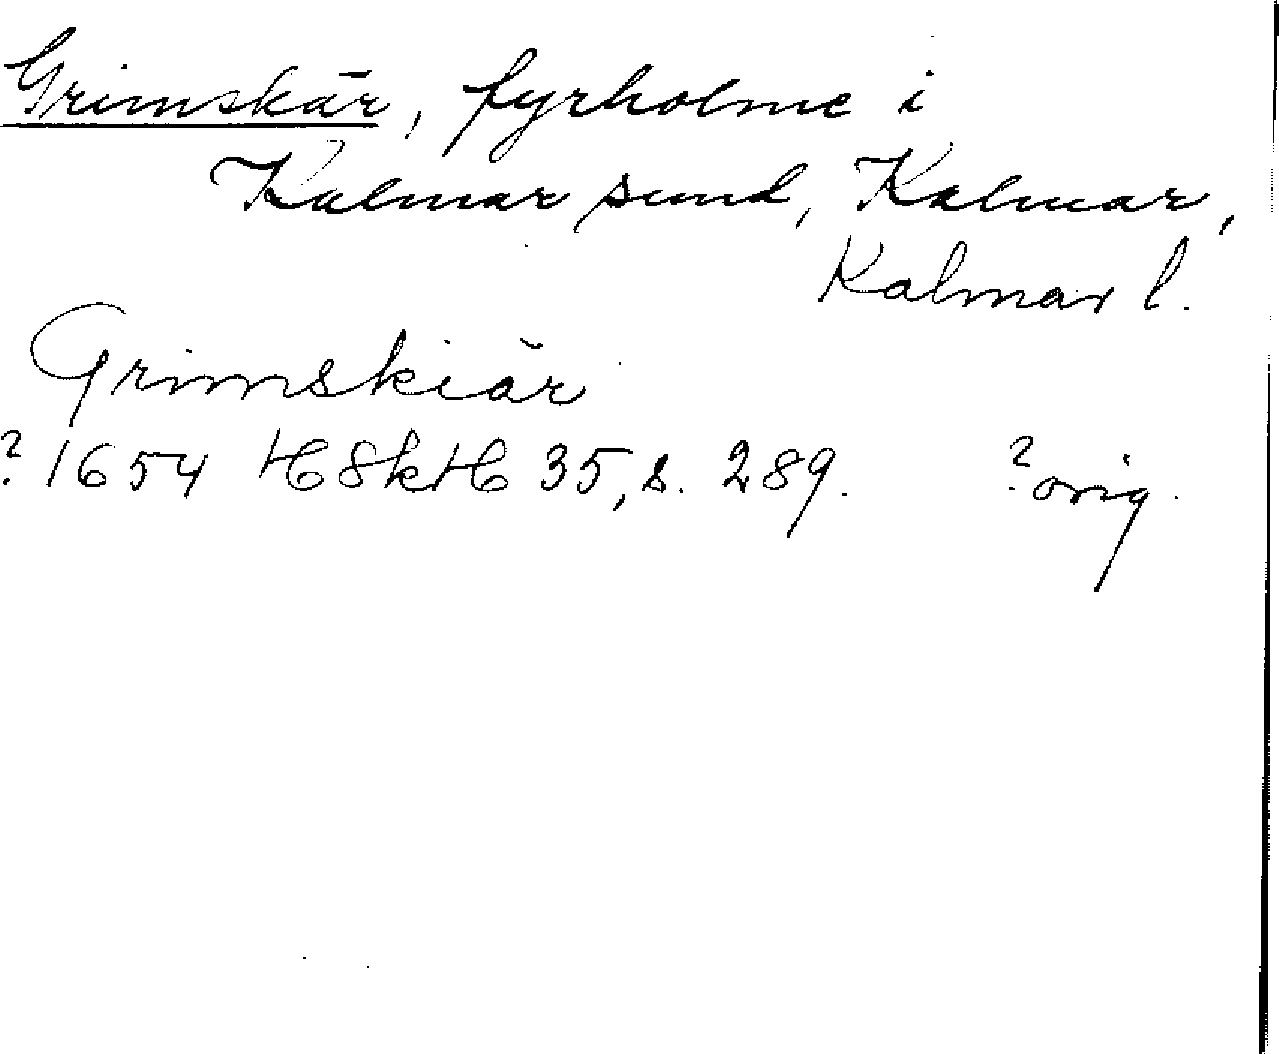 Grimskär, fyrholme i
Kalmar sund, Kalmar,
Kalmar l.
Grimskiär
? 1654 HSkH 35, s. 289. ? orig.